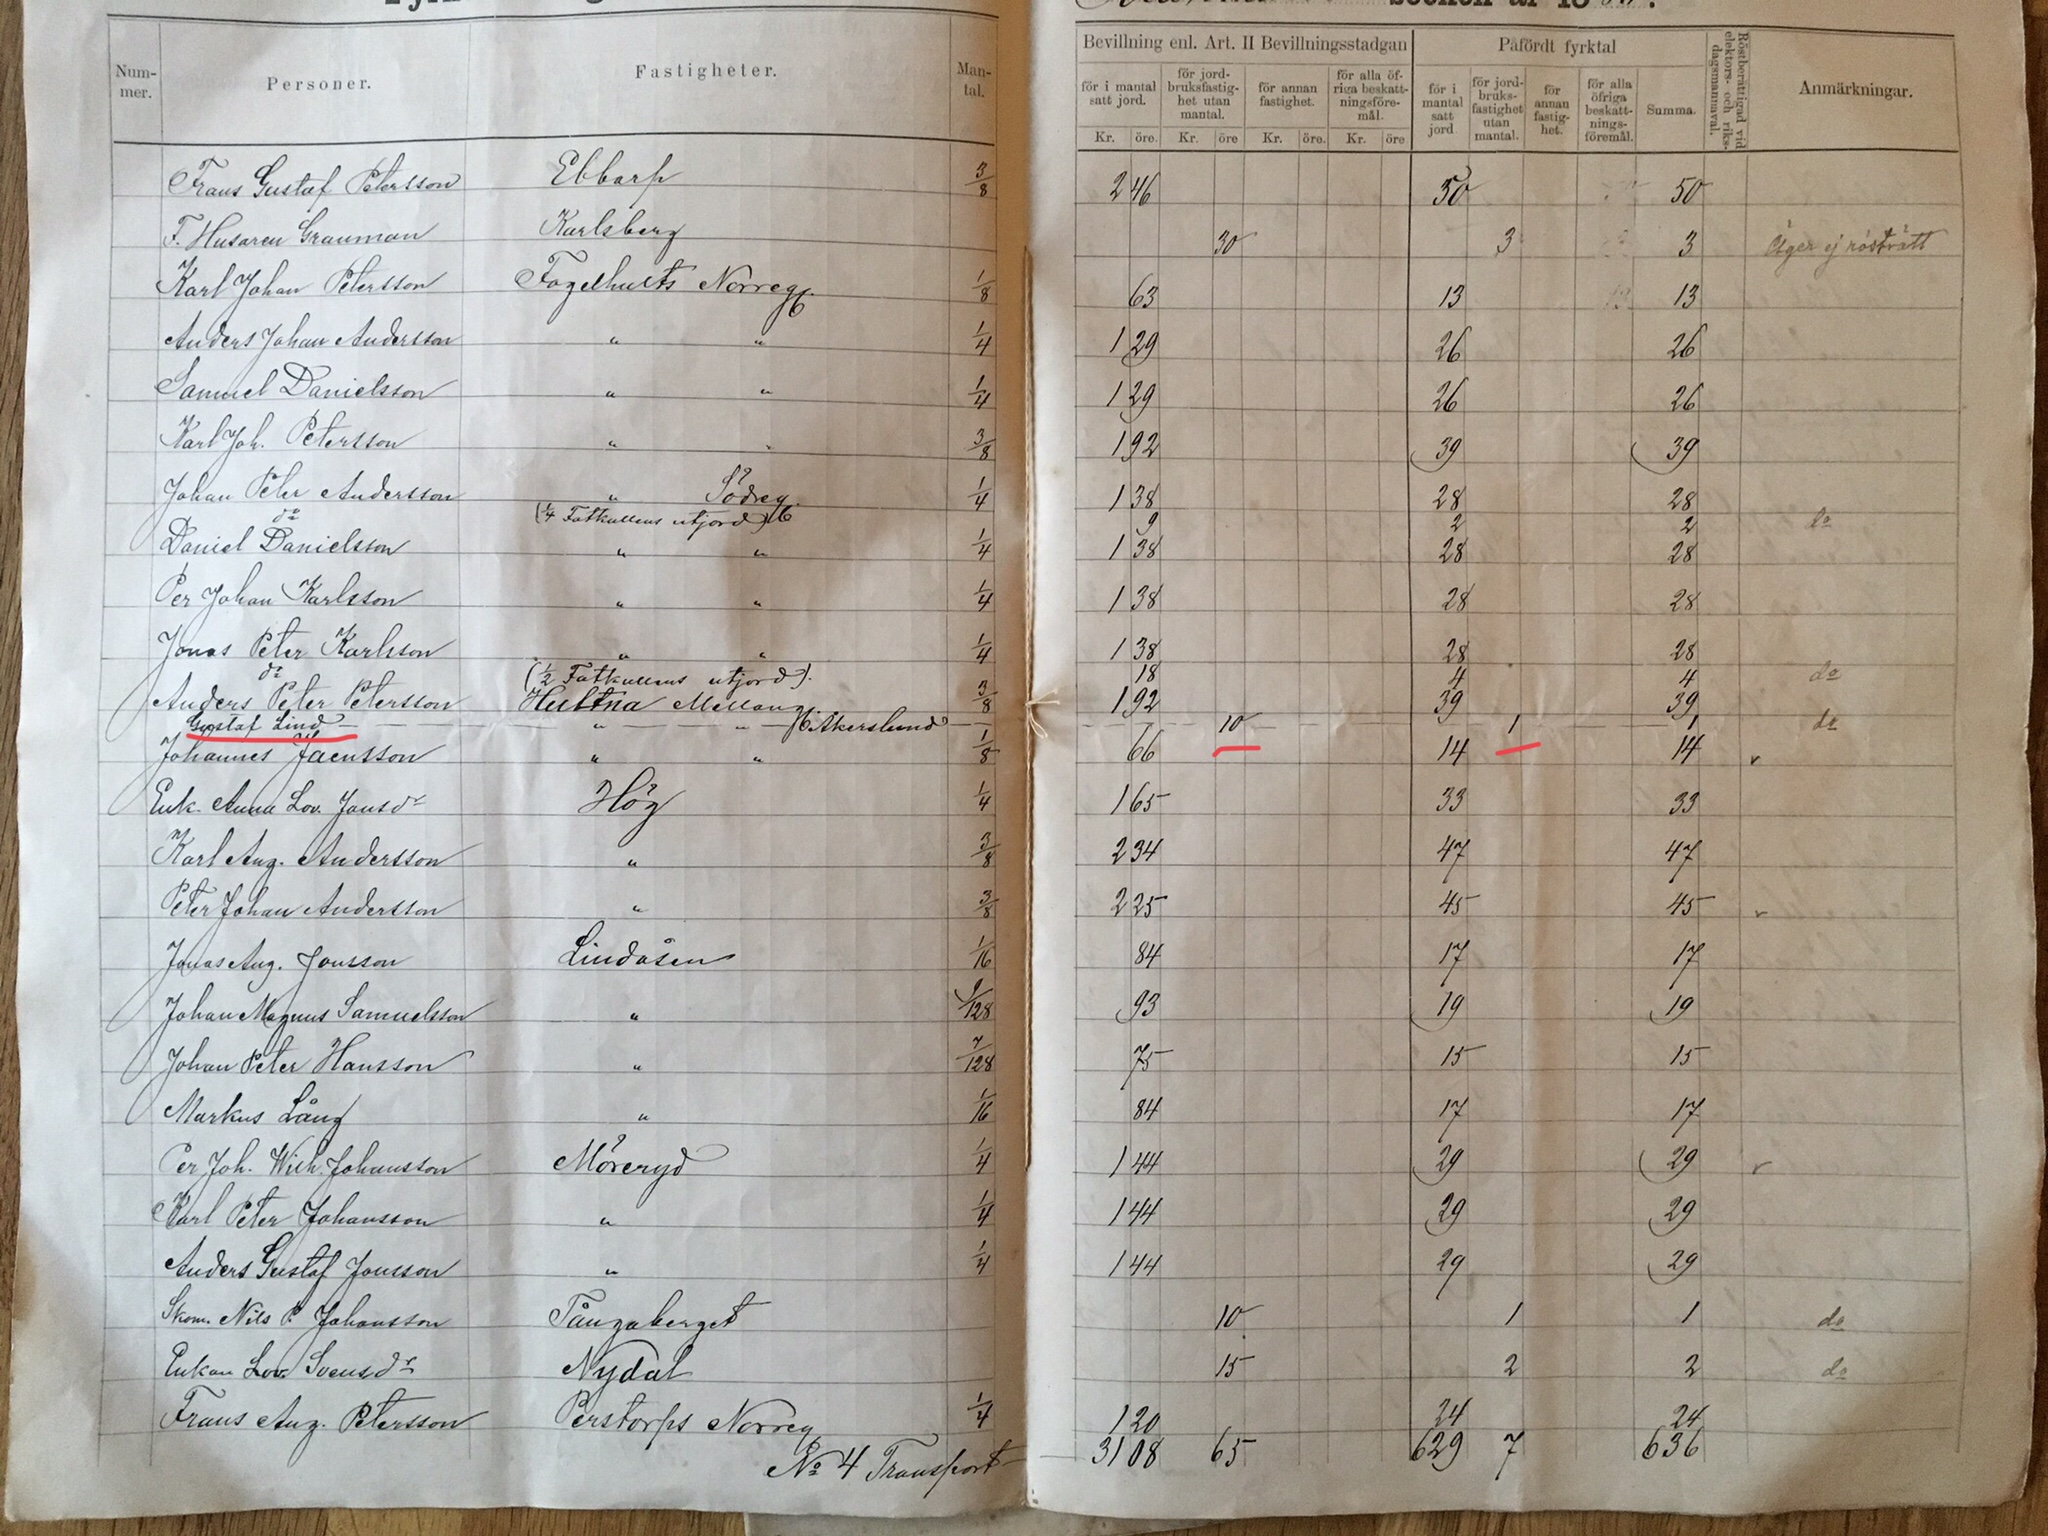 socken år 18
Num-
mer.
Personer.
Fastigheter.
Man-
tal.
Bevillning enl. Art. II Bevillningsstadgan
Påfördt fyrktal
Röstberättigad vid
elektors- och riks-
dagsmannaval.
Anmärkningar.
för i mantal
satt jord.
för jord-
bruksfastig-
het utan
mantal.
för annan
fastighet.
för alla öf-
riga beskatt-
ningsföre-
mål.
för i
mantal
satt
jord
för jord-
bruks-
fastighet
utan
mantal.
för
annan
fastig-
het.
för alla
öfriga
beskatt-
nings-
föremål.
Summa.
Kr. öre. Kr. öre Kr. öre. Kr. öre
Frans Gustaf Petersson Ebbarp 3/8 2 46 50 50
F. Husaren Grauman Karlsberg 30 3 3 Äger ej rösträtt
Karl Johan Petersson Fogelhults Norreg 1/8 63 13 13
Anders Johan Andersson " " 1/4 1 29 26 26
Samuel Danielsson " " 1/4 1 29 26 26
Karl Joh. Petersson " " 3/8 1 92 39 39
Johan Peter Andersson " Södreg 1/4 1 38 28 28
do (1/4 Fatkullens utjord) 9 2 2 do
Daniel Danielsson " " 1/4 1 38 28 28
Per Johan Karlsson " " 1/4 1 38 28 28
Jonas Peter Karlsson " " 1/4 1 38 28 28
do (1/2 Fatkullens utjord). 18 4 4 do
Anders Peter Petersson Hultna Mellang. 3/8 1 92 39 39
Gustaf Lind " " Akerslund 10 1 1 do
Johannes Jaensson " " 1/8 66 14 14
Enk. Anna Lov. Jonsdr Hög 1/4 1 65 33 33
Karl Aug. Andersson " 3/8 2 34 47 47
Peter Johan Andersson " 3/8 2 25 45 45
Jonas Aug. Jonsson Lindåsen 1/16 84 17 17
Johan Magnus Samuelsson " 9/128 93 19 19
Johan Peter Hansson " 7/128 75 15 15
Markus Lång " 1/16 84 17 17
Per Joh. Wilh. Johansson Möreryd 1/4 1 44 29 29
Karl Peter Johansson " 1/4 1 44 29 29
Anders Gustaf Jonsson " 1/4 1 44 29 29
Skom. Nils P. Johansson Tångaberget 10 1 1 do
Enkan Lov. Svensdr Nydal 15 2 2 do
Frans Aug. Petersson Perstorps Norreg 1/4 1 20 24 24
No 4 Transport 31 08 65 629 7 636